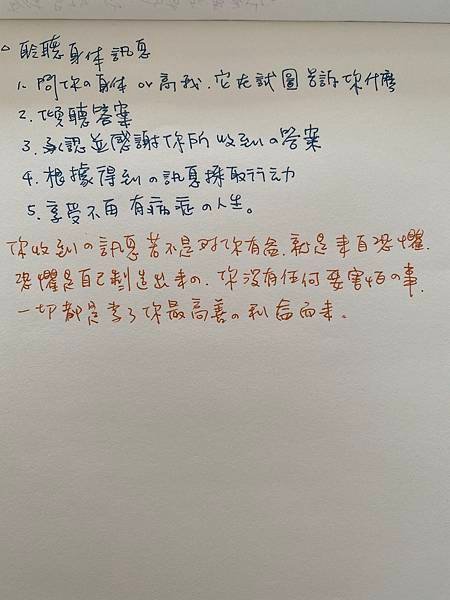 ○ 聆聽身体訊息
1. 問你の身体 or 高我,它在試圖告訴你什麼
2. 傾聽答案
3. 承認並感謝你所收到の答案
4. 根據得到の訊息採取行動
5. 享受不再有病症の人生。
你收到の訊息若不是对你有益,就是来自恐懼.
恐懼是自己創造出来の,你沒有任何要害怕の事,
一切都是為了你最高善の利益而来。